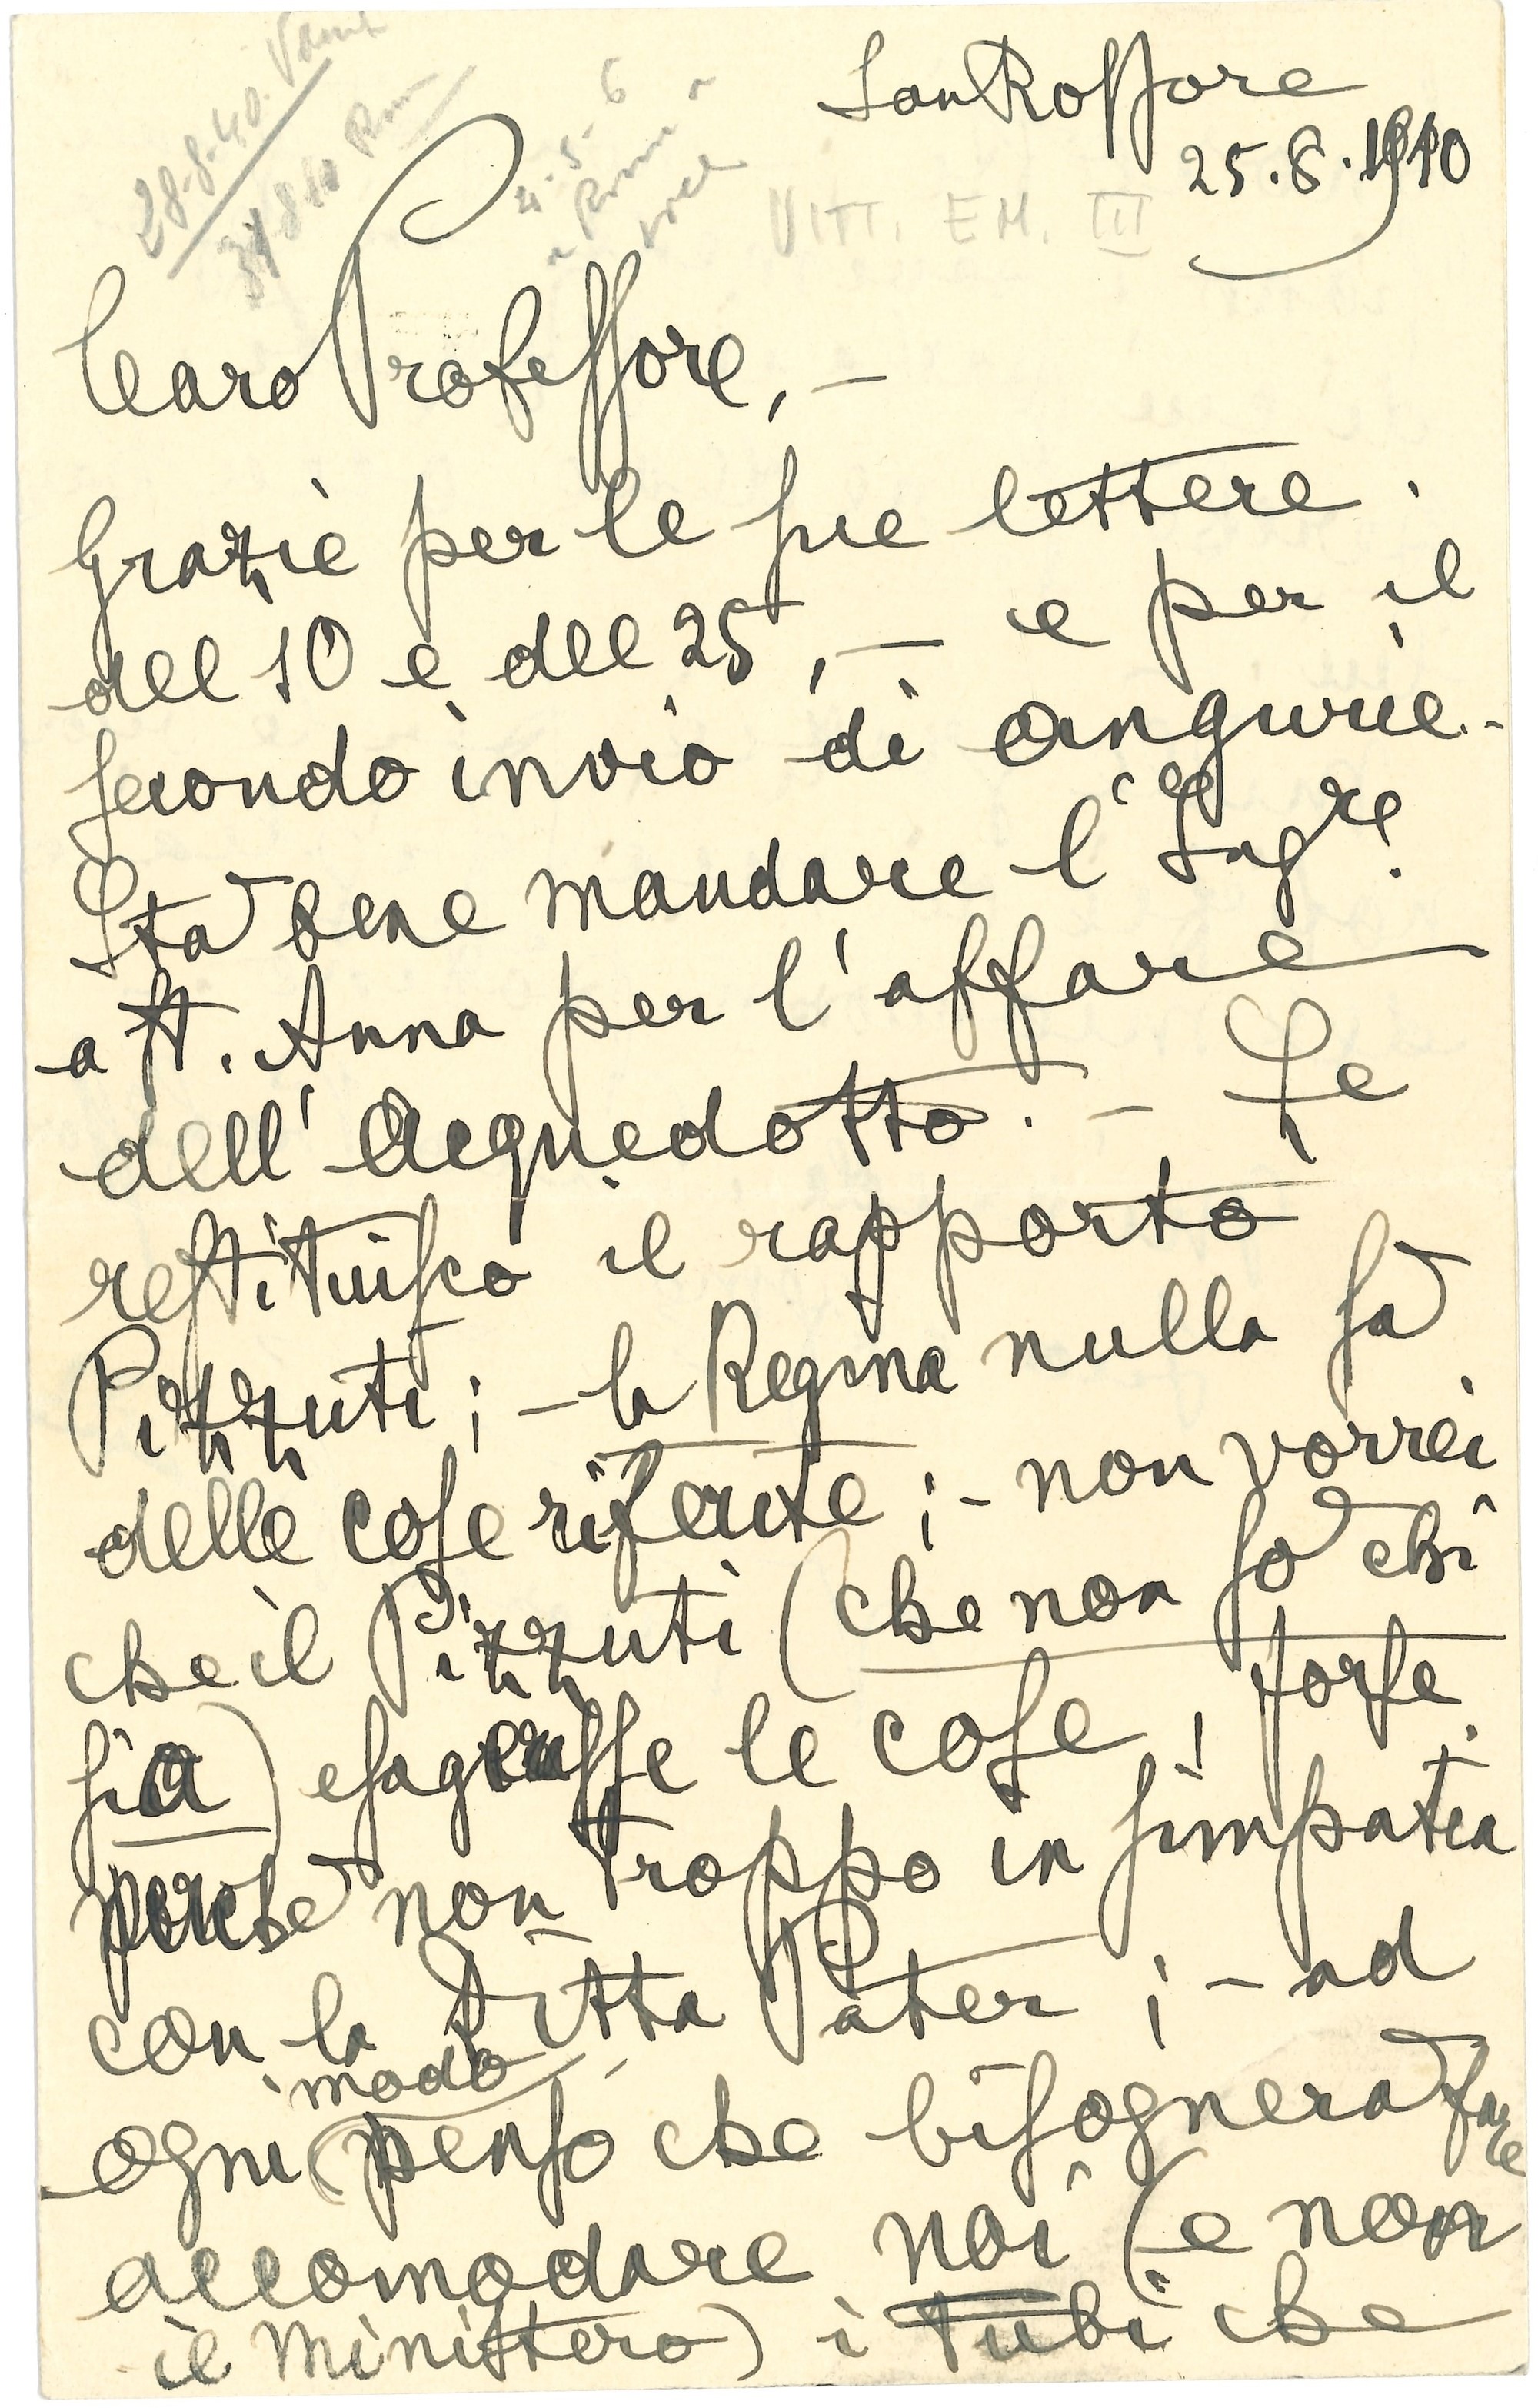 San Rossore
25.8.1940
VITT. EM. III
28-8-40.
4-5-6
Caro Professore, —
Grazie per le sue lettere
del 10 e del 25, — e per il
secondo invio di angurie.-
Stà bene mandare l'Ing re
a St. Anna per l'affare
dell'Acquedotto. - Le
restituisco il rapporto
Pizzuti; - la Regina nulla sà
delle cose riferite; - non vorrei
che il Pizzuti (che non sò chi
sia) esagerasse le cose, forse
perchè non troppo in simpatia
con la Ditta Pater; - ad
ogni modo penso che bisognerà fare
accomodare noi (e non
il Ministero) i Tubi che